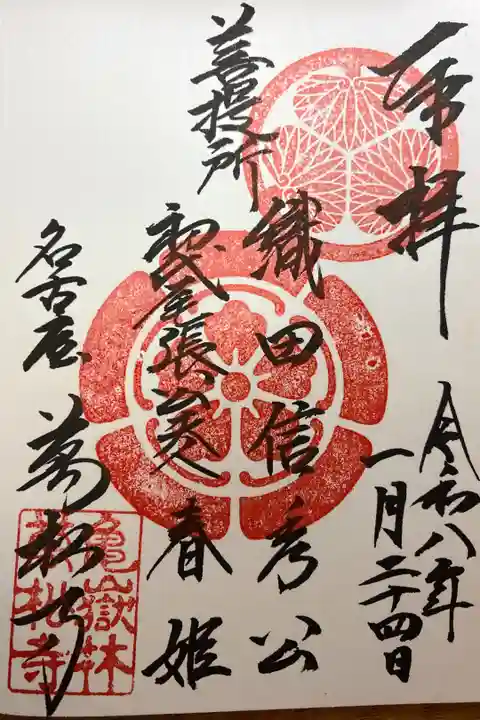 奉拝
令和八年
一月二十四日
菩提所
織田信秀公
初代尾張公夫人
春姫
名古屋
萬松寺
亀嶽林
萬松寺